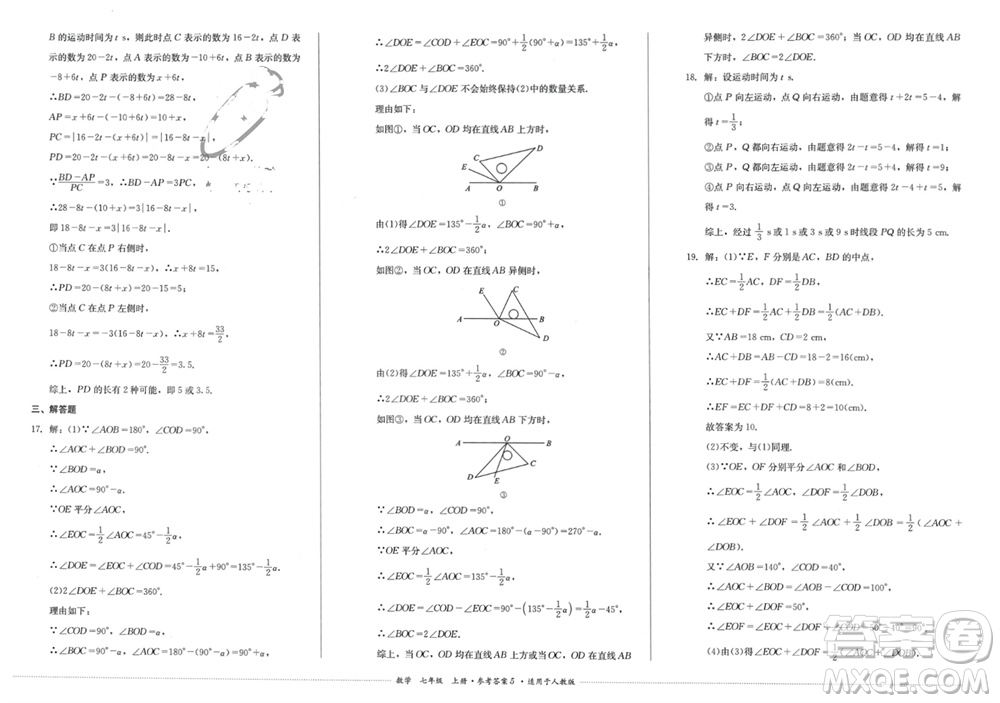 B 的运动时间为 t s，则此时点 C 表示的数为 16－2t，点 D 表
示的数为 20－2t，点 A 表示的数为－10＋6t，点 B 表示的数为
－8＋6t，点 P 表示的数为 x＋6t，
∴BD＝20－2t－(－8＋6t)＝28－8t，
AP＝x＋6t－(－10＋6t)＝10＋x，
PC＝|16－2t－(x＋6t)|＝|16－8t－x|，
PD＝20－2t－(x＋6t)＝20－8t－x＝20－(8t＋x)，
∵(BD－AP)/PC＝3，∴BD－AP＝3PC，
∴28－8t－(10＋x)＝3|16－8t－x|，
即 18－8t－x＝3|16－8t－x|，
①当点 C 在点 P 右侧时，
18－8t－x＝3(16－8t－x)，∴x＋8t＝15，
∴PD＝20－(8t＋x)＝20－15＝5；
②当点 C 在点 P 左侧时，
18－8t－x＝－3(16－8t－x)，∴x＋8t＝33/2，
∴PD＝20－(8t＋x)＝20－33/2＝3.5.
综上，PD 的长有 2 种可能，即 5 或 3.5.
三、解答题
17. 解：(1)∵∠AOB＝180°，∠COD＝90°，
∴∠AOC＋∠BOD＝90°.
∵∠BOD＝α，
∴∠AOC＝90°－α，
∵OE 平分∠AOC，
∴∠EOC＝1/2∠AOC＝45°－1/2α，
∴∠DOE＝∠EOC＋∠COD＝45°－1/2α＋90°＝135°－1/2α.
(2)2∠DOE＋∠BOC＝360°.
理由如下：
∵∠COD＝90°，∠BOD＝α，
∴∠BOC＝90°－α，
∴∠AOC＝180°－(90°－α)＝90°＋α.
∵OE 平分∠AOC，
∴∠DOE＝∠COD＋∠EOC＝90°＋1/2(90°＋α)＝135°＋1/2α，
∴2∠DOE＋∠BOC＝360°.
(3)∠BOC 与∠DOE 不会始终保持(2)中的数量关系.
理由如下：
如图①，当 OC，OD 均在直线 AB 上方时，
D
C
E
A O B
①
由(1)得∠DOE＝135°－1/2α，∠BOC＝90°＋α，
∴2∠DOE＋∠BOC＝360°；
如图②，当 OC，OD 在直线 AB 异侧时，
E C
A O B
D
②
由(2)得∠DOE＝135°＋1/2α，∠BOC＝90°－α，
∴2∠DOE＋∠BOC＝360°；
如图③，当 OC，OD 均在直线 AB 下方时，
A O B
D E C
③
∵∠BOD＝α，∠COD＝90°，
∴∠BOC＝α－90°，∴∠AOC＝180°－(α－90°)＝270°－α.
∵OE 平分∠AOC，
∴∠EOC＝1/2∠AOC＝135°－1/2α，
∴∠DOE＝∠COD－∠EOC＝90°－(135°－1/2α)＝1/2α－45°，
∴∠BOC＝2∠DOE.
综上，当 OC，OD 均在直线 AB 上方时或 OC，OD 在直线 AB
异侧时，2∠DOE＋∠BOC＝360°；当 OC，OD 均在直线 AB
下方时，∠BOC＝2∠DOE.
18. 解：设运动时间为 t s.
①点 P 向左运动，点 Q 向右运动，由题意得 t＋2t＝5－4，解得
t＝1/3；
②点 P，Q 都向右运动，由题意得 2t－t＝5－4，解得 t＝1；
③点 P，Q 都向左运动，由题意得 2t－t＝5＋4，解得 t＝9；
④点 P 向右运动，点 Q 向左运动，由题意得 2t－4＋t＝5，解得
t＝3.
综上，经过 1/3 s 1 s 或 3 s 或 9 s 时线段 PQ 的长为 5 cm.
19. 解：(1)∵E，F 分别是 AC，BD 的中点，
∴EC＝1/2AC，DF＝1/2DB，
∴EC＋DF＝1/2AC＋1/2DB＝1/2(AC＋DB).
又∵AB＝18 cm，CD＝2 cm，
∴AC＋DB＝AB－CD＝18－2＝16(cm)，
∴EC＋DF＝1/2(AC＋DB)＝8 cm，
∴EF＝EC＋DF＋CD＝8＋2＝10(cm).
故答案为 10.
(2)不变，与(1)同理.
(3)∵OE，OF 分别平分∠AOC 和∠BOD，
∴∠EOC＝1/2∠AOC，∠DOF＝1/2∠DOB，
∴∠EOC＋∠DOF＝1/2∠AOC＋1/2∠DOB
＝1/2(∠AOC＋∠DOB).
又∵∠AOB＝140°，∠COD＝40°，
∴∠AOC＋∠BOD＝∠AOB－∠COD＝100°，
∴∠EOC＋∠DOF＝50°，
∴∠EOF＝∠EOC＋∠DOF＋∠COD＝50°＋40°＝90°.
(4)由(3)得∠EOF＝
数学 七年级 上册·参考答案5·适用于人教版
答案卷